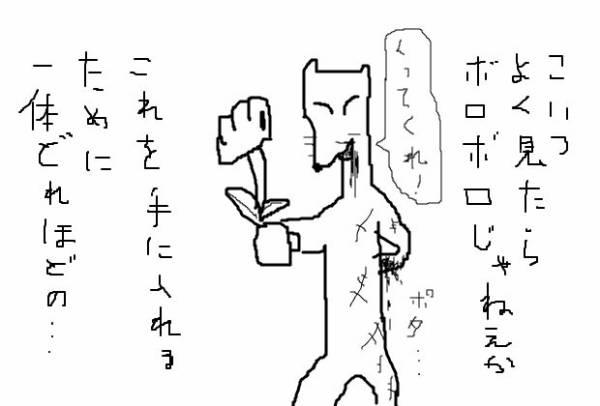 こいつ
よく見たら
ボロボロじゃねえか
くってくれ！
ポタ…
これを手に入れる
ために
一体どれほどの…